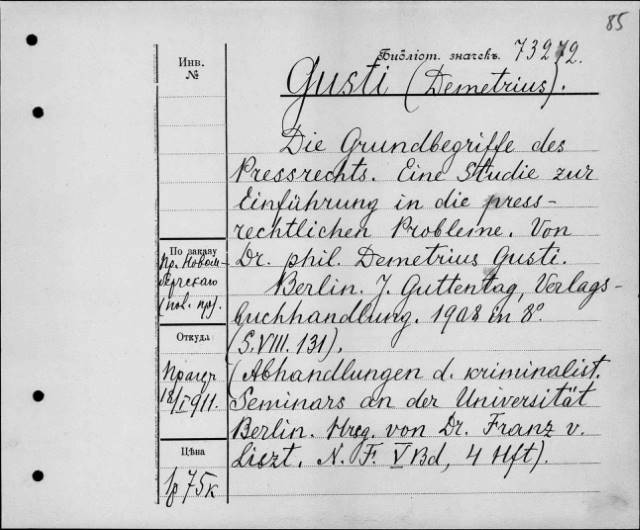 85
Инв.
№
Библіот. значекъ. 73272.
Gusti (Demetrius).
Die Grundbegriffe des
Pressrechts. Eine Studie zur
Einführung in die press-
rechtlichen Probleme. Von
Dr. phil. Demetrius Gusti.
Berlin. J. Guttentag, Verlags-
buchhandlung. 1908 in 8°
(S. VIII. 131).
(Abhandlungen d. kriminalist.
Seminars an der Universität
Berlin. Hrsg. von Dr. Franz v.
Liszt. N. F. V Bd, 4 Hft).
По заказу
Пр. Новом-
бергскаго
(нов. пр).
Откуда
Прагер
18/I 911.
Цѣна
1р 75к